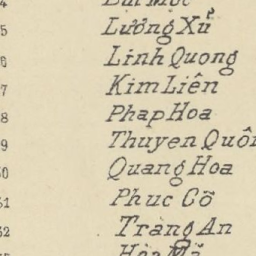 Lương Xử
6 Linh Quong
7 Kim Liên
8 Phap Hoa
9 Thuyen Quôn
0 Quang Hoa
Phuc Cô
32 Tràng An